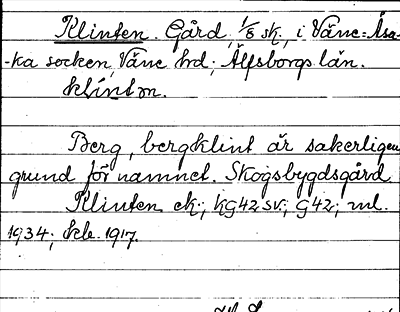 Klinten. Gård, 1/8 sk., i Väne-Åsa-
-ka socken, Väne hrd., Älfsborgs län.
klintn.
Berg, bergklint är säkerligen
grund för namnet. Skogsbygdsgård
Klinten ek.; KG42SV.; G42; ml.
1934; skb. 1917.